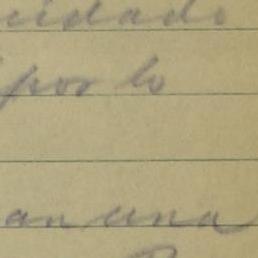 cuidado
por lo
an una